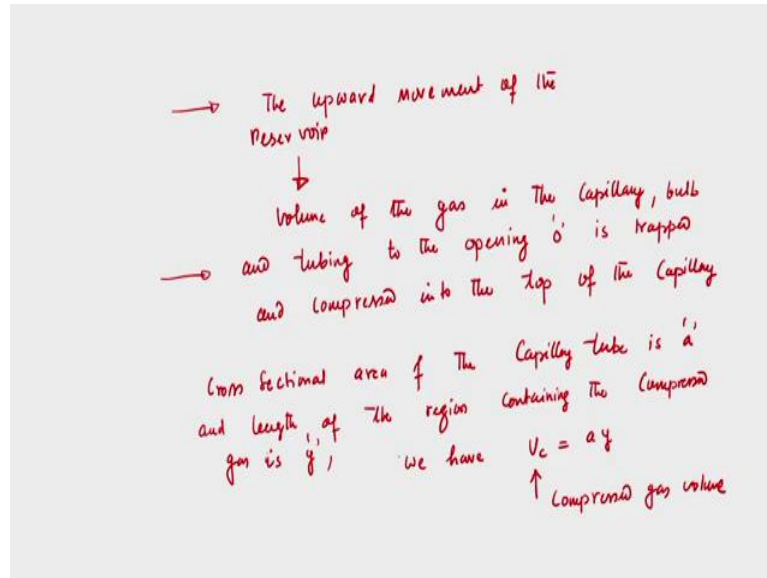 → The upward movement of the
Reservoir
↓
Volume of the gas in the Capillary, bulb
→ and tubing to the opening 'o' is trapped
and compressed into the top of the Capillary
Cross Sectional area of The Capillary tube is 'a'
and length of the region containing the Compressed
gas is 'y', we have Vc = ay
↑ Compressed gas volume